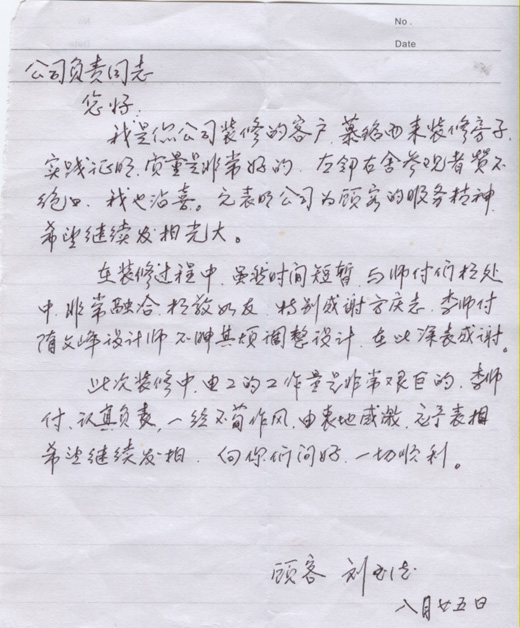 No.
Date
公司负责同志
您好.
我是你公司装修的客户,慕名而来装修房子.
实践证明,质量是非常好的,左邻右舍参观者赞不
绝口,我也沾喜。充表明公司为顾客的服务精神
希望继续发相光大。
在装修过程中,虽然时间短暂,与师付们相处
中,非常融洽,相敬如友,特别感谢方庆志,李师付
隋文峰设计师不啤其烦调整设计,在此深表感谢。
此次装修中,电工的工作量是非常艰巨的,李师
付,认真负责,一丝不苟作风,由表地感激,充予表相
希望继续发相,向你们问好,一切顺利。
顾客 刘
八月廿五日